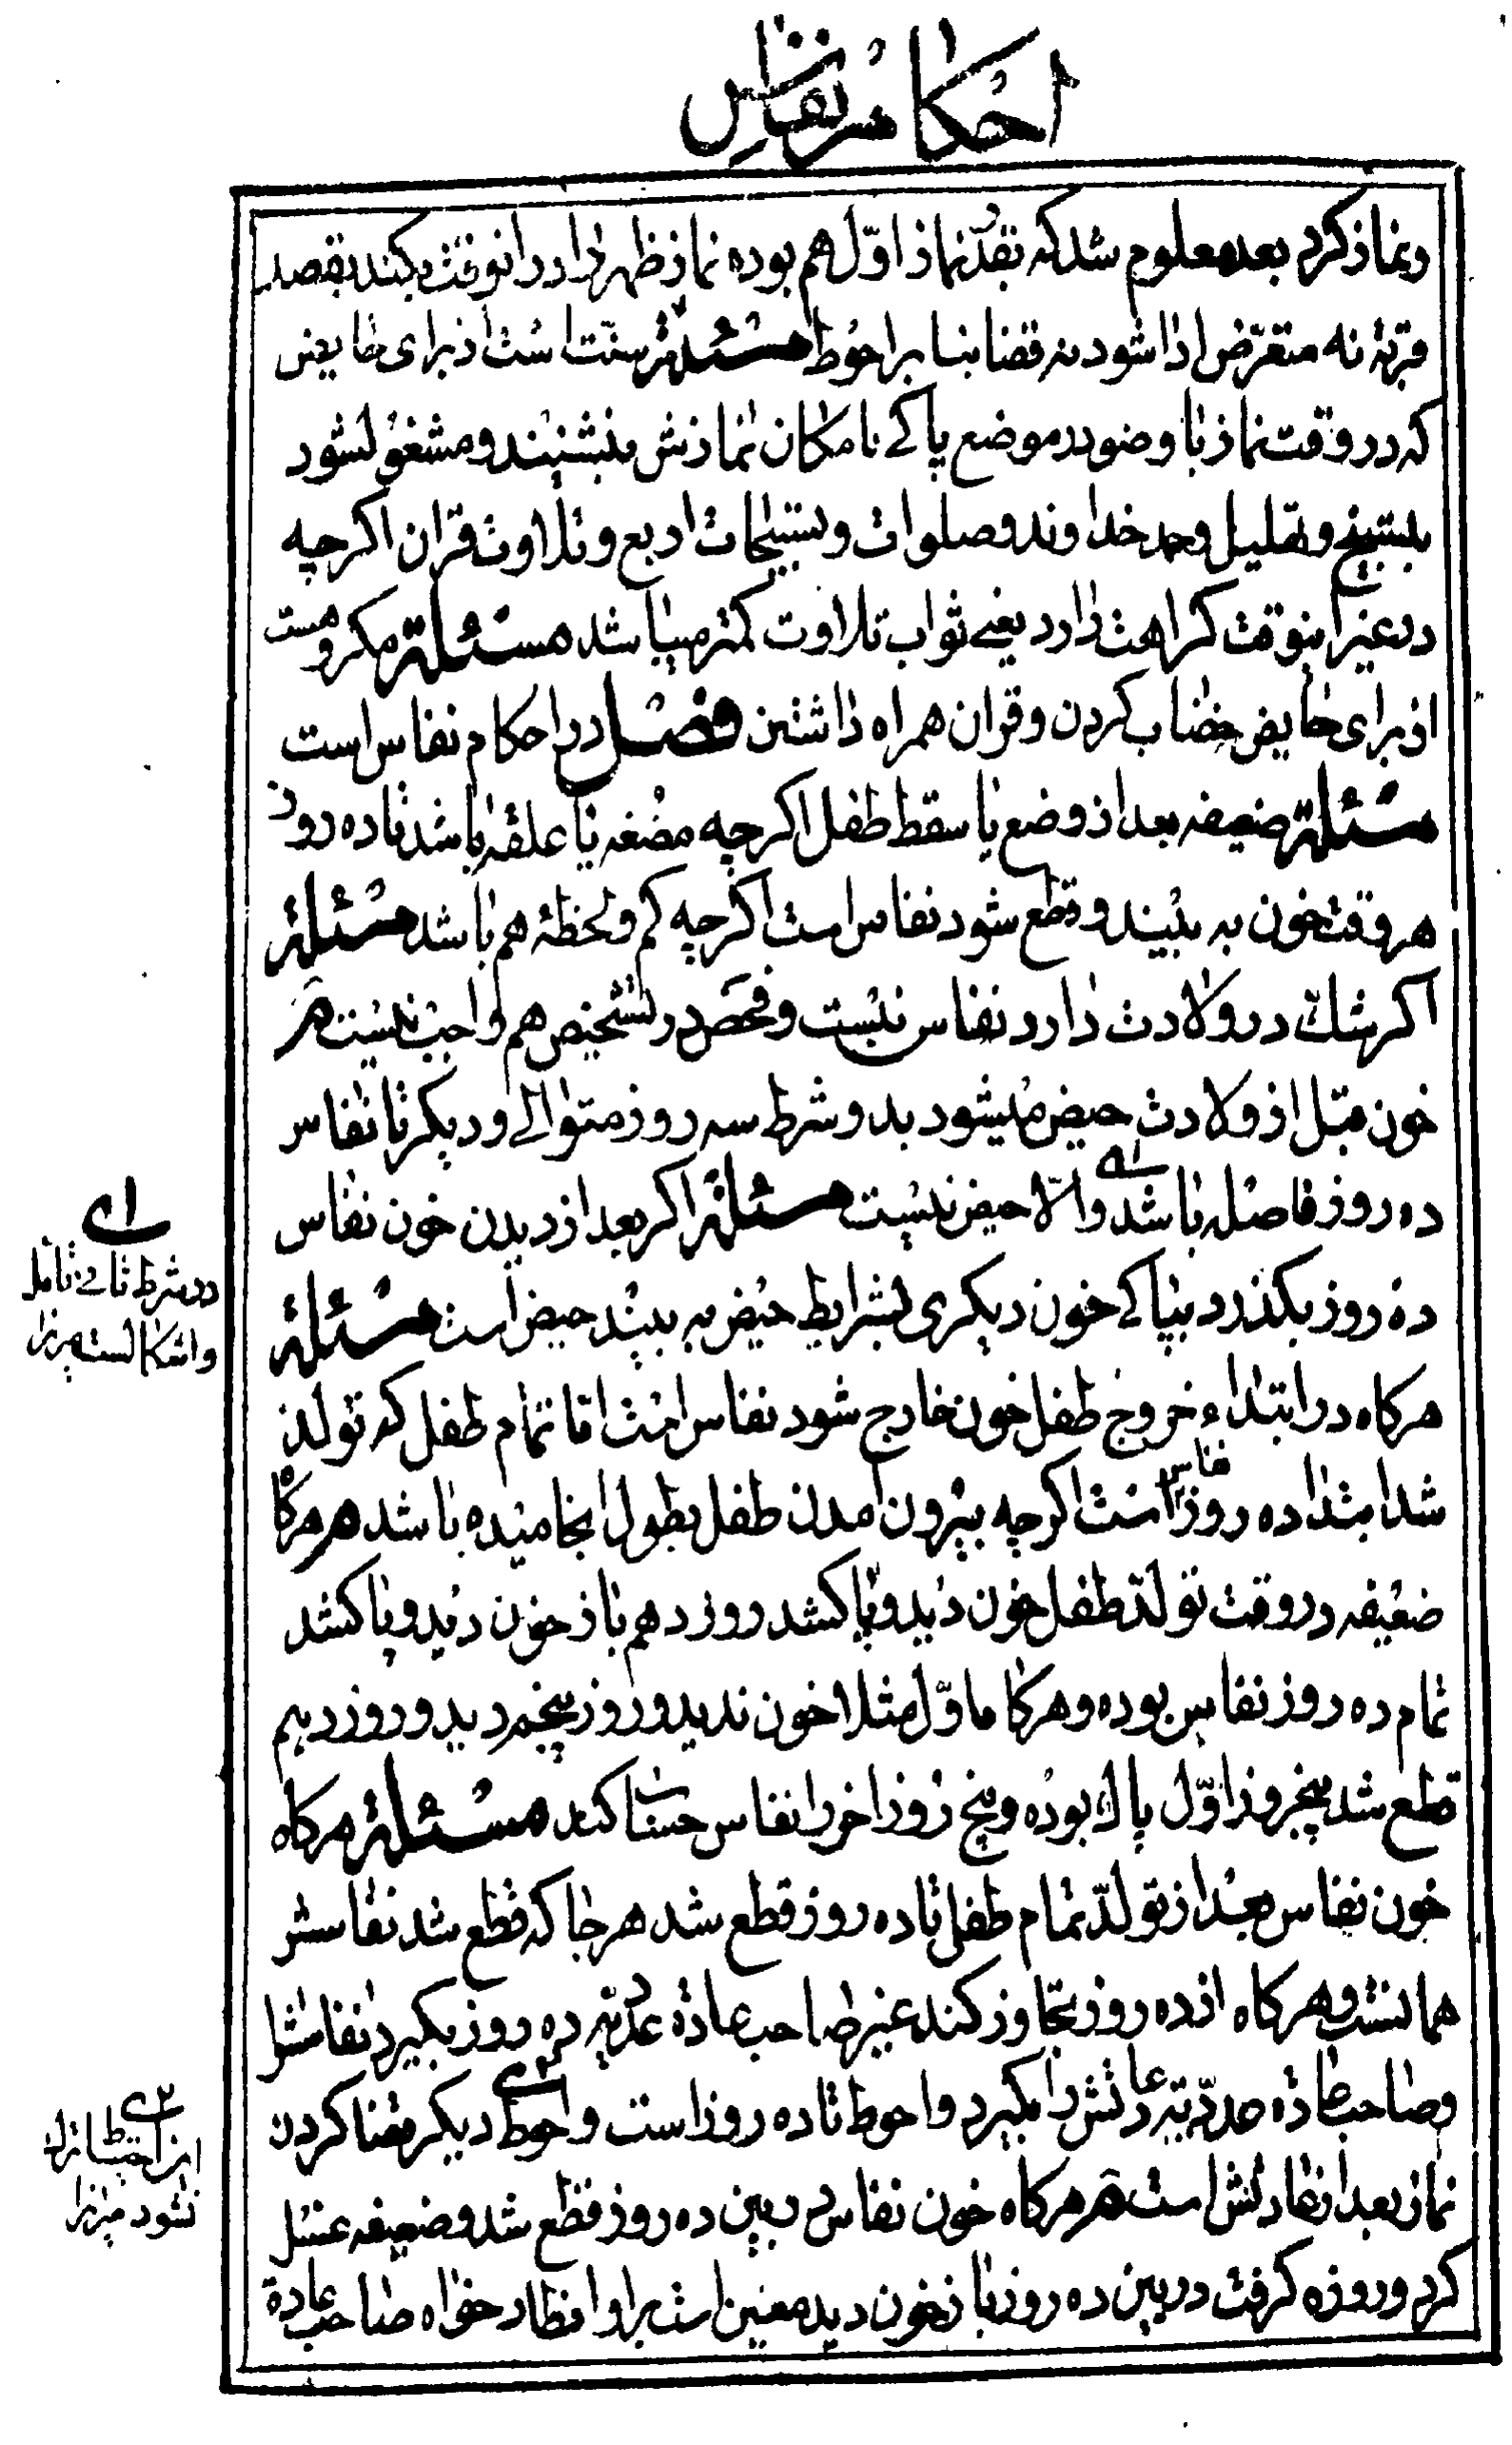 احکام نفاس
ونماز کرد بعد معلوم شد که بقدر نماز اوّل هم بوده نماز ظهر را در انوقت بکند بقصد
قربة نه متعرّض ادا شود نه قضا بنا بر احوط مسئلة سنّت است از برای حایض
که در وقت نماز با وضو در موضع پاکی یا مکان نمازش بنشیند و مشغول شود
بتسبیح و تهلیل و حمد خداوند و صلوات و تسبیحات اربع و تلاوت قران اگر چه
در غیر اینوقت کراهت دارد یعنی ثواب تلاوت کمتر میباشد مسئلة مکروهست
از برای حایض خضاب کردن و قران همراه داشتن فصل در احکام نفاس است
مسئلة ضعیفه بعد از وضع یا سقط طفل اگر چه مضغه یا علقه باشد تا ده روز
هر وقت خون به بیند و قطع شود نفاس است اگر چه کم و لحظۀ هم باشد مسئلة
اگر شکّ در ولادت دارد نفاس نیست و فحص در تشخیص هم واجب نیست مر
خون قبل از ولادت حیض میشود بدو شرط سه روز متوالی و دیگر تا نفاس
ده روز فاصله باشد والّا حیض نیست مسئلة اگر بعد از دیدن خون نفاس
ده روز بگذرد بپاکی خون دیگری بشرایط حیض به بیند حیض است مسئلة
هرگاه در ابتداء خروج طفل خون خارج شود نفاس است امّا تمام طفل که تولد
شد ابتداء ده روز نفاس است اگر چه بیرون امدن طفل بطول انجامیده باشد مر هرگاه
ضعیفه در وقت تولّد طفل خون دید و پاک شد روز دهم باز خون دید و پاک شد
تمام ده روز نفاس بوده و هرگاه اوّل مثلا خون ندید و روز پنجم دید و روز دهم
قطع شد پنجروز اوّل پاک بوده و پنج روز اخر را نفاس حساب کند مسئلة هرگاه
خون نفاس بعد از تولّد تمام طفل تا ده روز قطع شد هر جا که قطع شد نفاسش
همانست و هرگاه از ده روز تجاوز کند غیر صاحب عادة عددیّه ده روز بگیرد نفاسش را
و صاحب عادة عددیّه عادتش را بگیرد و احوط تا ده روز است و احوط دیگر قضا کردن
نماز بعد از عادتش است مر هرگاه خون نفاس در بین ده روز قطع شد و ضعیفه غسل
کرد و روزه گرفت در بین ده روز باز خون دید معین است بر او افطار خواه صاحب عادة
در شرط ثانی تامل
و اشکالست میرزا
این احتیاط ترک
نشود میرزا